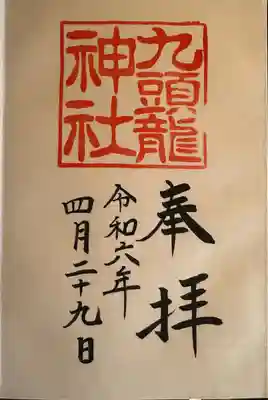 九頭龍
神社
奉拝
令和六年
四月二十九日